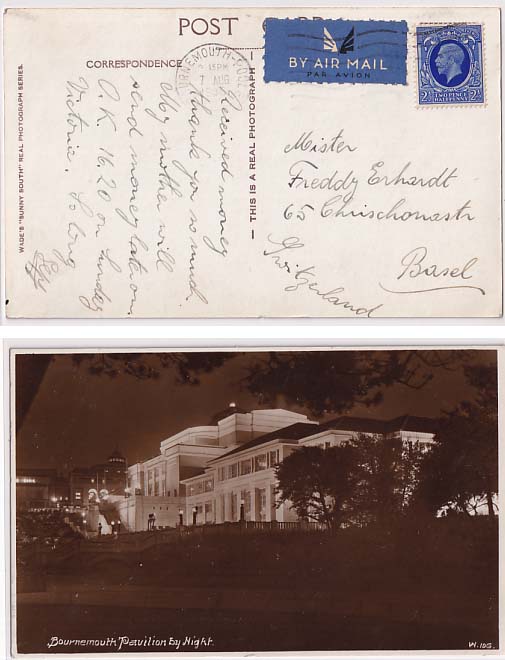 POST CARD
BY AIR MAIL
PAR AVION
CORRESPONDENCE
BOURNEMOUTH-POOLE
15PM
7 AUG
TWOPENCE
HALFPENNY
2½
2½
WADE'S "SUNNY SOUTH" REAL PHOTOGRAPH SERIES.
THIS IS A REAL PHOTOGRAPH
Received money
thank you so much.
My mother will
send money late on.
A.K. 16.20 on Sunday
Victoria. So long
Mister
Freddy Erhardt
65 Chrischonastr
Basel
Switzerland
Bournemouth Pavilion by Night.
W.105.